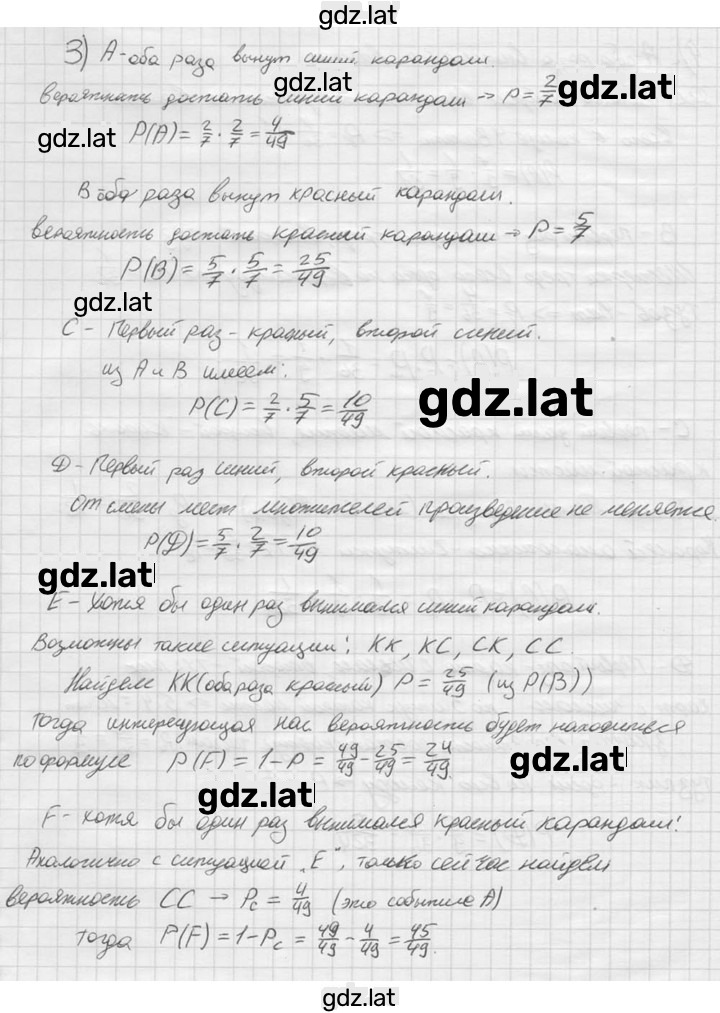 gdz.lat
3) A - оба раза вынут синий карандаш.
gdz.lat
вероятность достать синий карандаш → P = 2/7
gdz.lat
gdz.lat
P(A) = 2/7 · 2/7 = 4/49
B оба раза вынут красный карандаш.
вероятность достать красный карандаш → P = 5/7
P(B) = 5/7 · 5/7 = 25/49
gdz.lat
C - Первый раз - красный, второй синий.
из A и B имеем:
P(C) = 2/7 · 5/7 = 10/49
gdz.lat
D - Первый раз синий, второй красный.
От смены мест множителей произведение не меняется
P(D) = 5/7 · 2/7 = 10/49
gdz.lat
E - Хотя бы один раз вынимался синий карандаш.
Возможны такие ситуации: КК, КС, СК, СС.
Найдем КК (оба раза красный) P = 25/49 (из P(B))
Тогда интересующая нас вероятность будет находиться
по формуле P(F) = 1 - P = 49/49 - 25/49 = 24/49.
gdz.lat
gdz.lat
F - хотя бы один раз вынимался красный карандаш!
Аналогично с ситуацией „E", только сейчас найдем
вероятность СС → Pc = 4/49 (это событие A)
тогда P(F) = 1 - Pc = 49/49 - 4/49 = 45/49.
gdz.lat